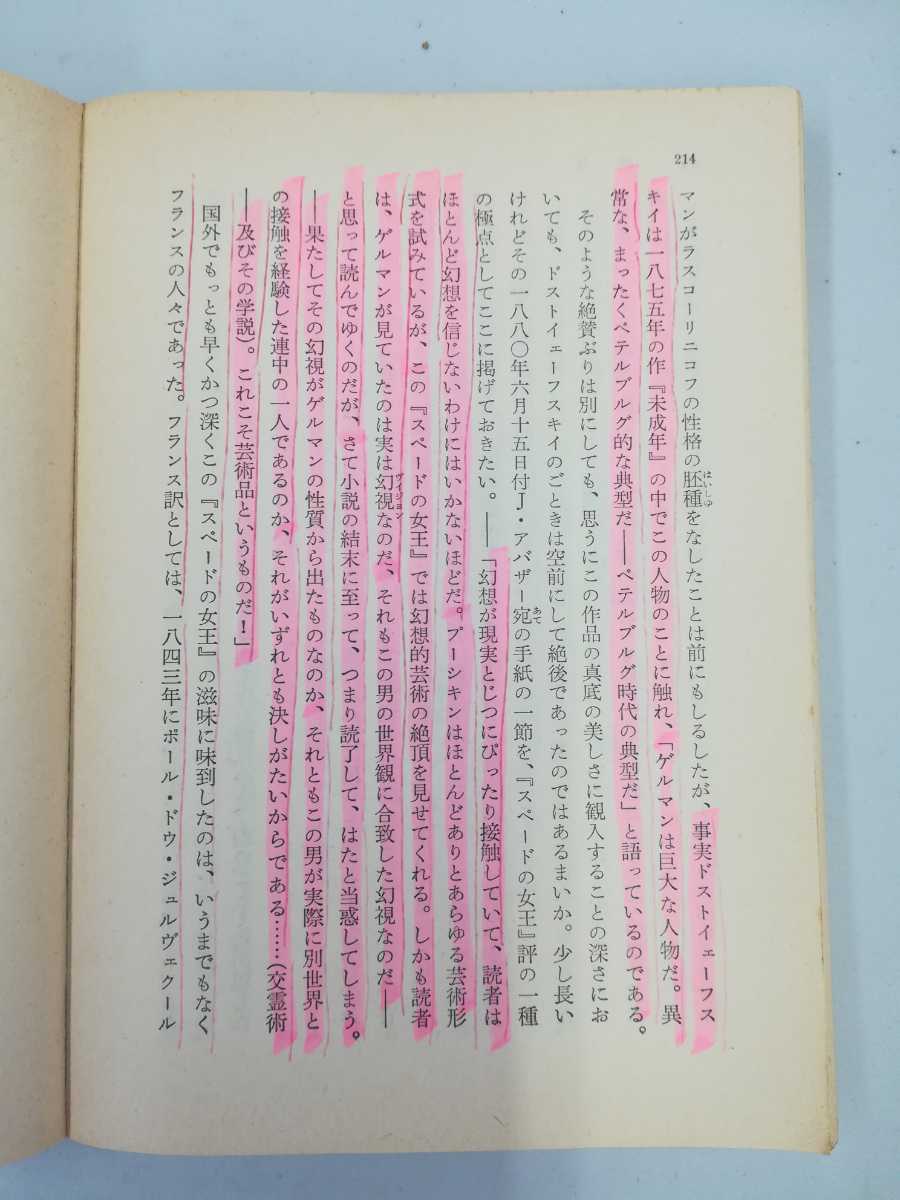 214
マンがラスコーリニコフの性格の胚種をなしたことは前にもしるしたが、事実ドストイェーフス
はいしゅ
キイは一八七五年の作『未成年』の中でこの人物のことに触れ、「ゲルマンは巨大な人物だ。異
常な、まったくペテルブルグ的な典型だ——ペテルブルグ時代の典型だ」と語っているのである。
そのような絶賛ぶりは別にしても、思うにこの作品の真底の美しさに観入することの深さにお
いても、ドストイェーフスキイのごときは空前にして絶後であったのではあるまいか。少し長い
けれどその一八八〇年六月十五日付J・アバザー宛の手紙の一節を、『スペードの女王』評の一種
あて
の極点としてここに掲げておきたい。——「幻想が現実とじつにぴったり接触していて、読者は
ほとんど幻想を信じないわけにはいかないほどだ。プーシキンはほとんどありとあらゆる芸術形
式を試みているが、この『スペードの女王』では幻想的芸術の絶頂を見せてくれる。しかも読者
は、ゲルマンが見ていたのは実は幻視なのだ、それもこの男の世界観に合致した幻視なのだ——
ヴィジョン
と思って読んでゆくのだが、さて小説の結末に至って、つまり読了して、はたと当惑してしまう。
——果たしてその幻視がゲルマンの性質から出たものなのか、それともこの男が実際に別世界と
の接触を経験した連中の一人であるのか、それがいずれとも決しがたいからである……（交霊術
——及びその学説）。これこそ芸術品というものだ！」
国外でもっとも早くかつ深くこの『スペードの女王』の滋味に味到したのは、いうまでもなく
フランスの人々であった。フランス訳としては、一八四三年にポール・ドゥ・ジュルヴェクール